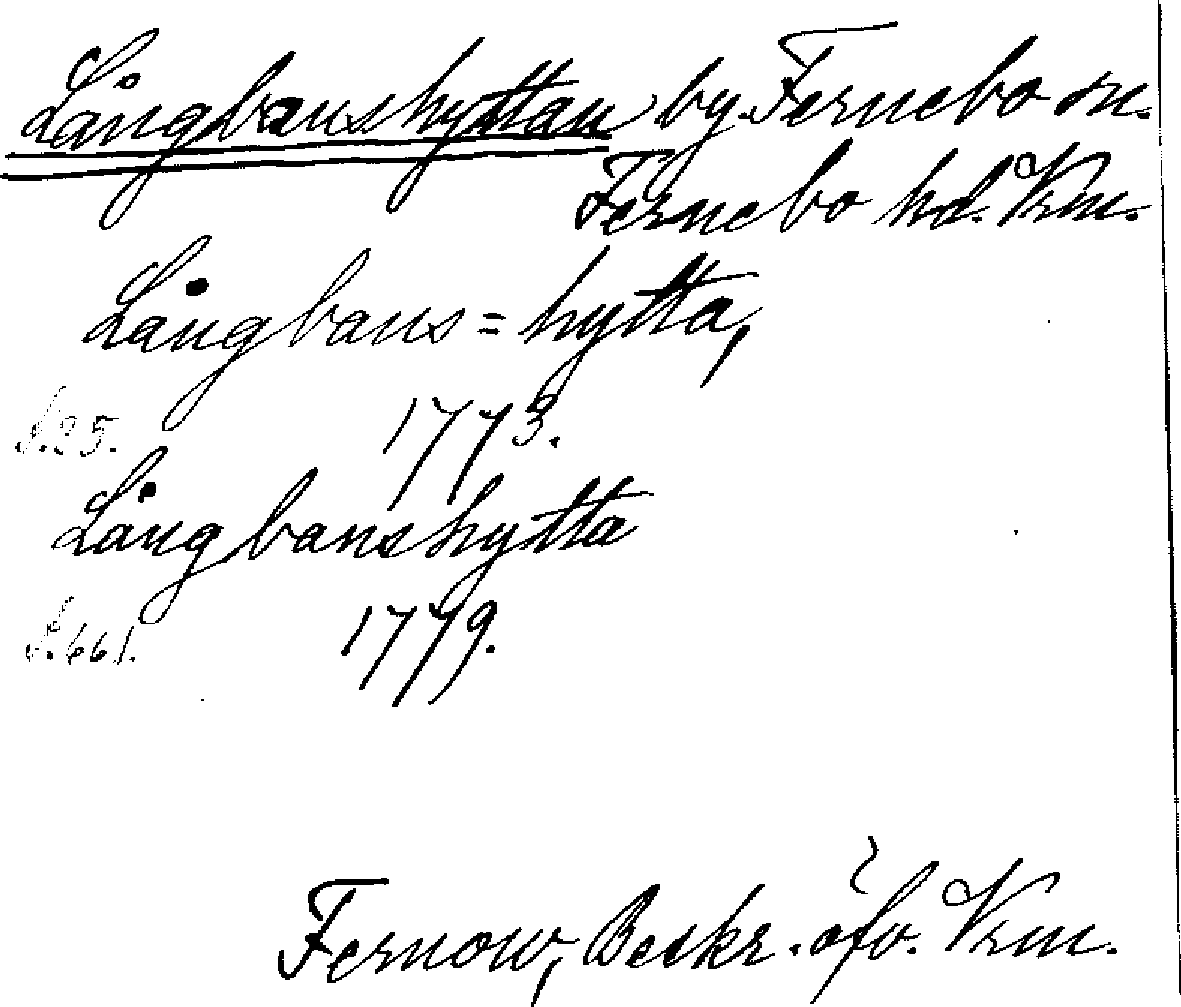 Långbanshyttan by. Fernebo sn.
Fernebo hd. Vrm.
Långbans=hytta,
S.25. 1773.
Långbanshytta
S.661. 1779.
Fernow, Beskr. öfv. Vrm.